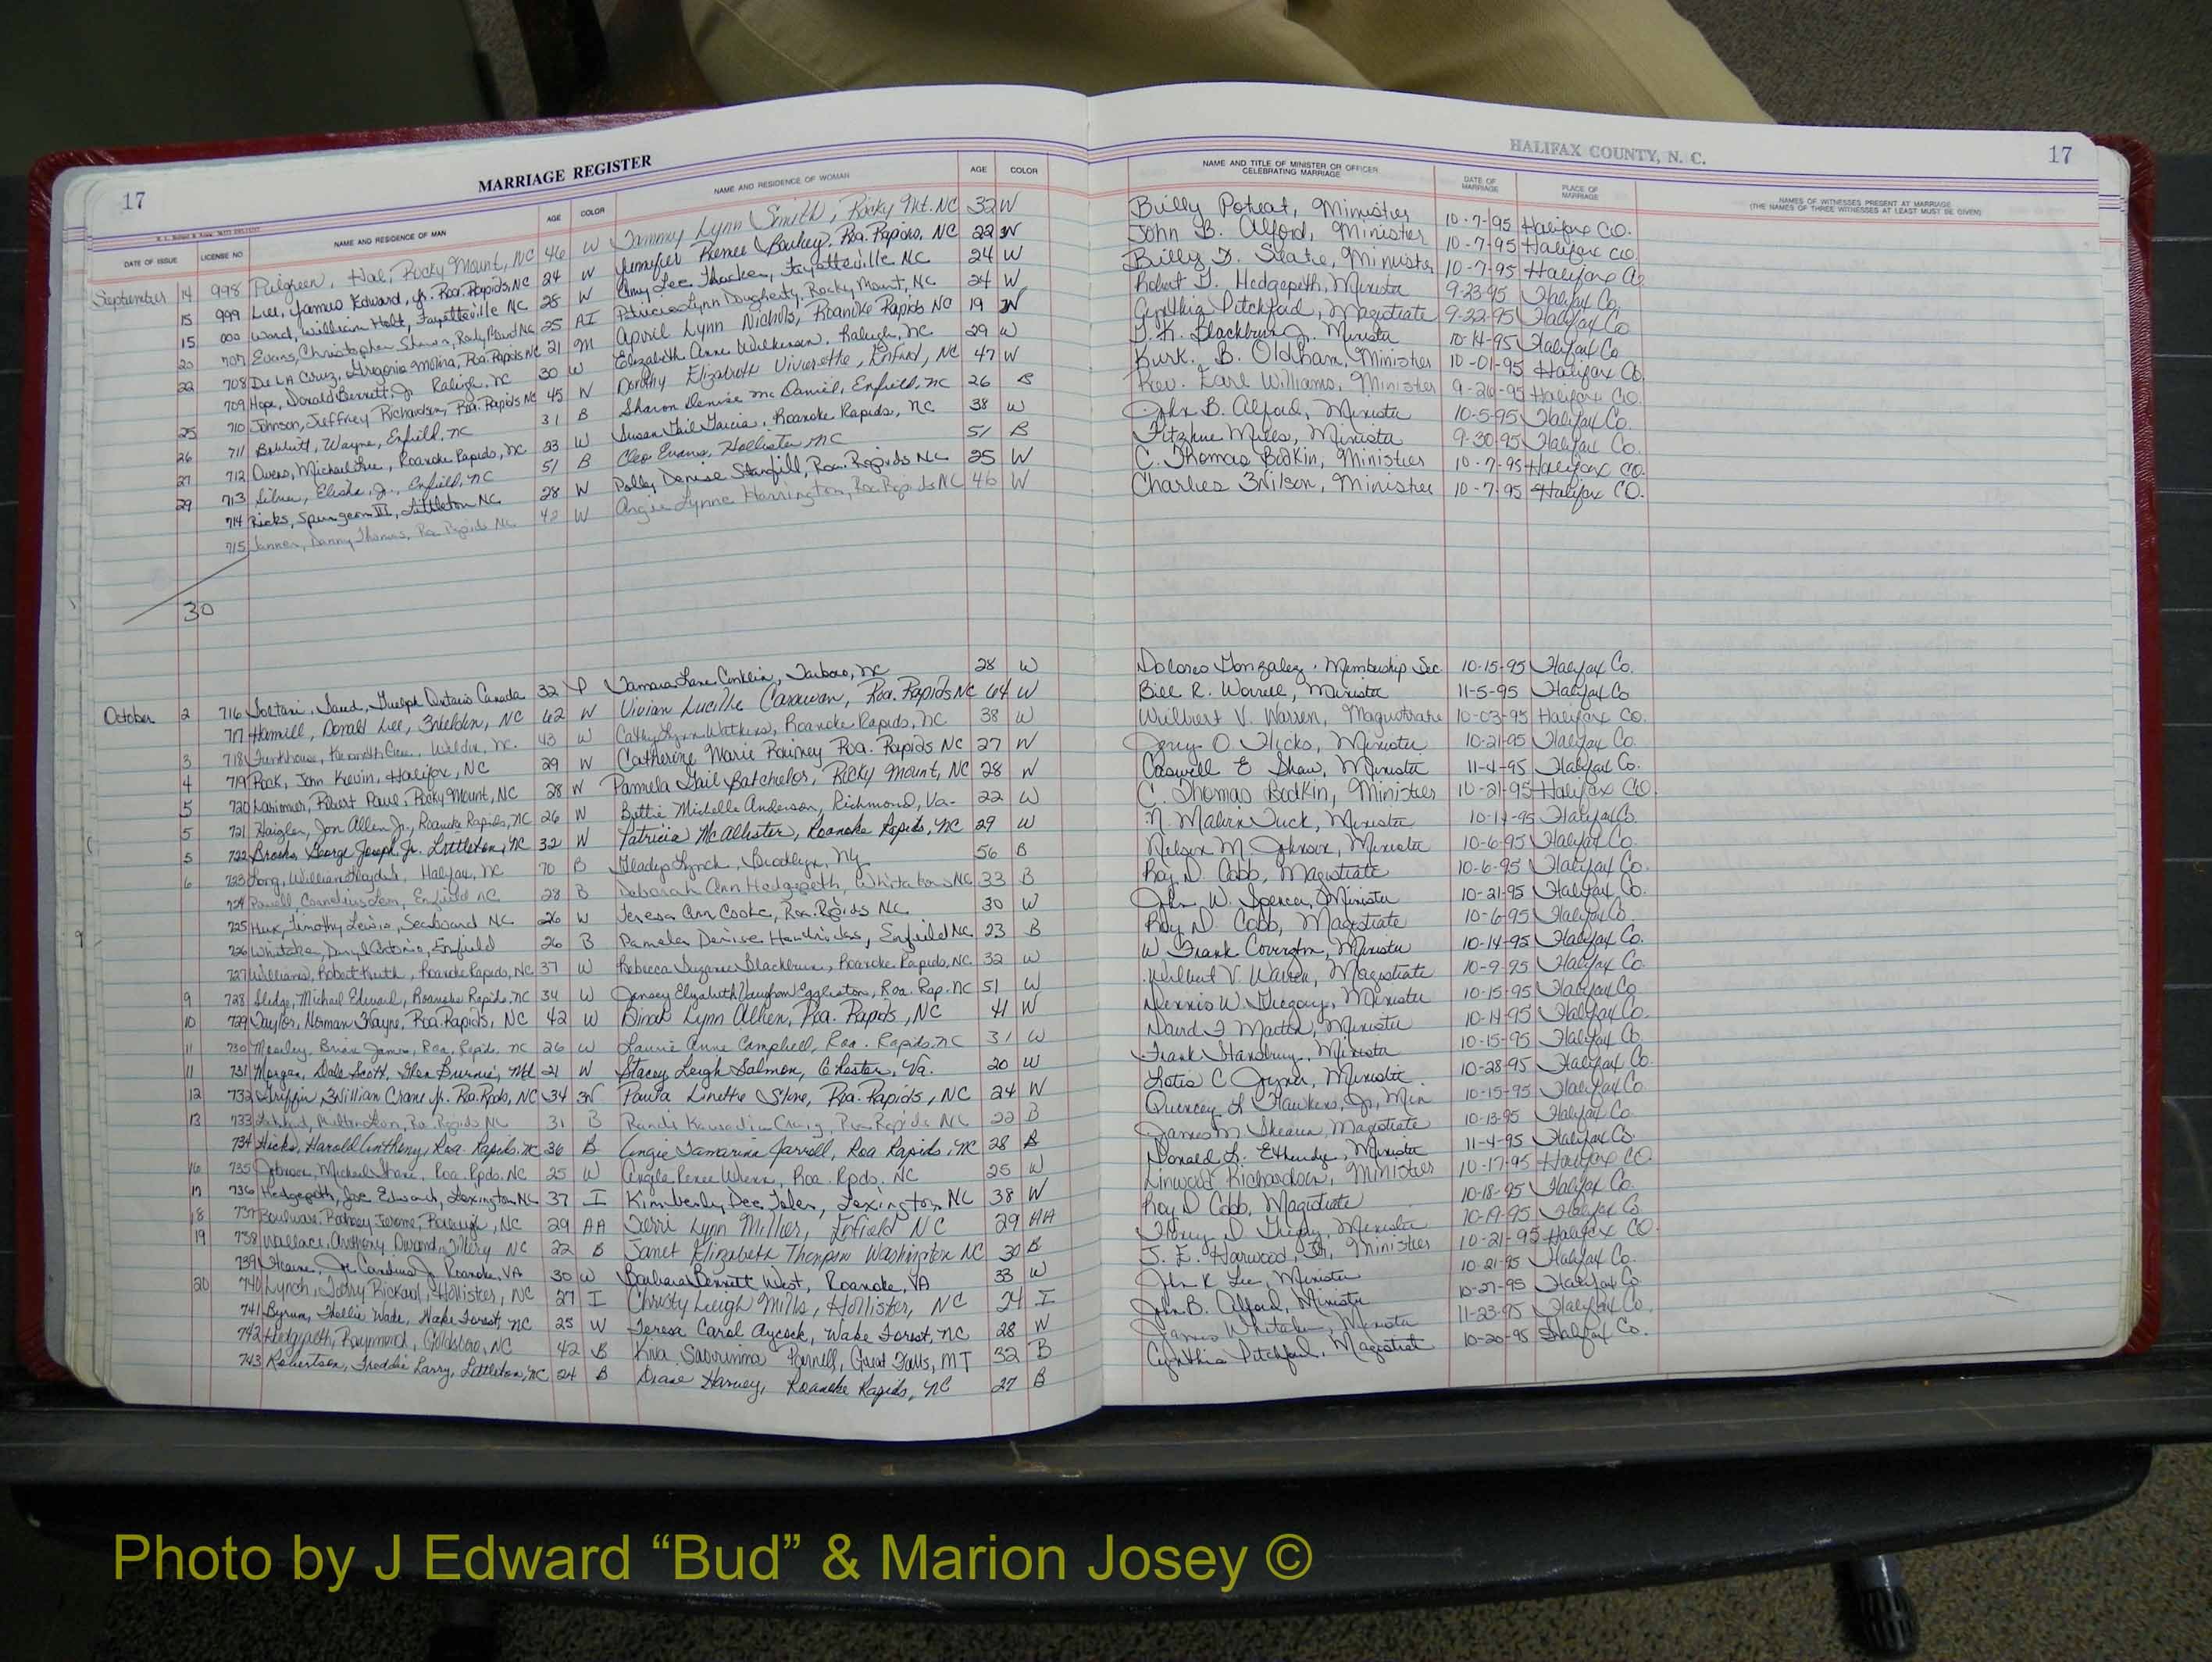 17 MARRIAGE REGISTER HALIFAX COUNTY, N. C. 17
DATE OF ISSUE LICENSE NO NAME AND RESIDENCE OF MAN AGE COLOR NAME AND RESIDENCE OF WOMAN AGE COLOR NAME AND TITLE OF MINISTER OR OFFICER CELEBRATING MARRIAGE DATE OF MARRIAGE PLACE OF MARRIAGE NAMES OF WITNESSES PRESENT AT MARRIAGE (THE NAMES OF THREE WITNESSES AT LEAST MUST BE GIVEN)
September 14 998 Pulgreen, Hal, Rocky Mount, NC 46 W Tammy Lynn Smith, Rocky Mt. NC 32 W Billy Poteat, Minister 10-7-95 Halifax Co.
15 999 Lee, James Edward, Jr. Roa. Rapids, NC 24 W Jennifer Renee Roa. Rapids, NC 22 W John B. Alford, Minister 10-7-95 Halifax Co
15 000 Ward, William Holt, Fayetteville NC 28 W Amy Lee Fayetteville NC 24 W Billy F. Minister 10-7-95 Halifax Co
20 707 Evans, Christopher Rocky Mount NC 25 AI Patricia Lynn Dougherty, Rocky Mount, NC 24 W Robert D. Hedgepeth, Minister 9-23-95 Halifax Co.
22 708 De La Cruz, Gregorio Molina, Roa. Rapids NC 21 M April Lynn Nichols, Roanoke Rapids NC 19 W Cynthia Pitchford, Magistrate 9-22-95 Halifax Co
709 Hope, Donald Bennett, Jr Raleigh, NC 30 W Elizabeth Anne Wilkerson, Raleigh, NC 29 W Blackburn, Jr. Minister 10-14-95 Halifax Co
25 710 Johnson, Jeffrey Richardson, Roa. Rapids NC 45 W Dorothy Elizabeth Viverette, Enfield, NC 47 W Kurk. B. Oldham, Minister 10-01-95 Halifax Co.
26 711 Bobbitt, Wayne, Enfield, NC 31 B Sharon Denise McDaniel, Enfield, NC 26 B Rev. Earl Williams, Minister 9-26-95 Halifax Co.
27 712 Owens, Michael Roanoke Rapids, NC 33 W Susan Gail Garcia, Roanoke Rapids, NC 38 W John B. Alford, Minister 10-5-95 Halifax Co.
29 713 Silver, Elisha, Jr., Enfield, NC 51 B Cleo Evans, Hollister NC 51 B Fitzhue Mills, Minister 9-30-95 Halifax Co.
714 Ricks, Spurgeon III, Littleton NC 28 W Polly Denise Stanfill, Roa. Rapids NC 25 W C. Thomas Bodkin, Minister 10-7-95 Halifax Co.
715 Tanner, Danny Thomas, Roa. Rapids NC 42 W Angie Lynne Harrington, Roa. Rapids NC 46 W Charles Wilson, Minister 10-7-95 Halifax CO.
30
October 2 716 Soltani, Guelph Ontario Canada 32 Tamara Lane Conklin, Tarboro, NC 28 W Dolores Gonzalez, Membership Sec 10-15-95 Halifax Co.
717 Hamill, Donald Lee, Weldon, NC 62 W Vivian Lucille Caravan, Roa. Rapids NC 64 W Bill R. Worrell, Minister 11-5-95 Halifax Co
3 718 Funkhouse, Kenneth Weldon, NC 43 W Cathy Lynn Watkins, Roanoke Rapids, NC 38 W Wilbert V. Warren, Magistrate 10-03-95 Halifax Co.
4 719 Rook, John Kevin, Halifax, NC 29 W Catherine Marie Rainey Roa. Rapids NC 27 W Jerry O. Hicks, Minister 10-21-95 Halifax Co.
5 720 Larimer, Robert Paul, Rocky Mount, NC 28 W Pamela Gail Batchelor, Rocky Mount, NC 28 W Caswell E Shaw, Minister 11-4-95 Halifax Co.
5 721 Haigler, Jon Allen Jr., Roanoke Rapids, NC 26 W Bettie Michelle Anderson, Richmond, Va. 22 W C. Thomas Bodkin, Minister 10-21-95 Halifax CO
5 722 Brooks, George Joseph, Jr. Littleton, NC 32 W Patricia McAllister, Roanoke Rapids, NC 29 W N. Malvin Tuck, Minister 10-14-95 Halifax Co.
6 723 Long, William Halifax, NC 70 B Gladys Lynch, Brooklyn, NY 56 B Nelson M. Johnson, Minister 10-6-95 Halifax Co.
724 Powell, Cornelius Enfield NC 28 B Deborah Ann Hedgepeth, Whitakers NC 33 B Roy D. Cobb, Magistrate 10-6-95 Halifax Co.
725 Hux, Timothy Lewis, Seaboard NC 26 W Teresa Ann Cooke, Roa. Rapids NC 30 W John W. Spencer, Minister 10-21-95 Halifax Co.
726 Whitaker, Daryl Antonio, Enfield 26 B Pamela Denise Enfield NC 23 B Roy D. Cobb, Magistrate 10-6-95 Halifax Co.
727 Williams, Robert Keith, Roanoke Rapids, NC 37 W Rebecca Suzanne Blackburn, Roanoke Rapids, NC 32 W W Frank Covington, Minister 10-14-95 Halifax Co.
9 728 Sledge, Michael Edward, Roanoke Rapids, NC 34 W Elizabeth Vaughan Eggleston, Roa. Rap. NC 51 W Wilbert V. Warren, Magistrate 10-9-95 Halifax Co
10 729 Taylor, Norman Wayne, Roa. Rapids, NC 42 W Dinah Lynn Allen, Roa. Rapids, NC 41 W Dennis W. Gregory, Minister 10-15-95 Halifax Co
11 730 Moseley, Brian James, Roa. Rapids, NC 26 W Laurie Anne Campbell, Roa. Rapids, NC 31 W David F Martin, Minister 10-14-95 Halifax Co.
11 731 Morgan, Dale Scott, Glen Burnie, Md 21 W Stacey Leigh Salmon, Chester, Va. 20 W Frank Stansbury, Minister 10-15-95 Halifax Co.
12 732 Griffin, William Crane Jr. Roa. Rpds, NC 34 W Paula Linette Stone, Roa. Rapids, NC 24 W C. Joyner, Minister. 10-28-95 Halifax Co.
13 733 Roa. Rapids NC 31 B Craig, Roa. Rapids NC 22 B Quincey L Hawkins, Jr, Min 10-15-95 Halifax Co.
734 Hicks, Harold Anthony, Roa Rapids, NC 36 B Angie Tamarina Jarrell, Roa Rapids, NC 28 B James M Shearin, Magistrate 10-13-95 Halifax Co.
16 735 Johnson, Michael Shane, Roa. Rpds. NC 25 W Angela Renee Wrenn, Roa. Rpds. NC 25 W Donald L. Etheridge, Minister 11-4-95 Halifax Co.
17 736 Hedgepeth, Joe Edward, Lexington NC 37 I Kimberly Dee Lexington, NC 38 W Linwood Richardson, Minister 10-17-95 Halifax CO
18 737 Boulware, Rodney Jerome, Raleigh, NC 29 AA Terri Lynn Millier, Enfield NC 29 AA Roy D Cobb, Magistrate 10-18-95 Halifax Co.
19 738 Wallace, Anthony Durand, Tillery NC 22 B Janet Elizabeth Thompson Washington NC 30 B Minister 10-19-95 Halifax Co
739 Roanoke, VA 30 W Barbara Bennett West, Roanoke, VA 33 W J. E. Harwood, Jr., Minister 10-21-95 Halifax CO.
20 740 Lynch, Terry Rickard, Hollister, NC 27 I Christy Leigh Mills, Hollister, NC 24 I John K. Lee, Minister 10-21-95 Halifax Co.
741 Byrum, Hollie Wade, Wake Forest, NC 25 W Teresa Carol Aycock, Wake Forest, NC 28 W John B. Alford, Minister 10-27-95 Halifax Co
742 Hedgepeth, Raymond, Goldsboro, NC 42 B Kiva Sabrinna Parnell, Great Falls, MT 32 B James Whitaker, Minister 11-23-95 Halifax Co.
743 Robertson, Freddie Larry, Littleton, NC 24 B Diane Harvey, Roanoke Rapids, NC 27 B Cynthia Pitchford, Magistrate 10-20-95 Halifax Co.
Photo by J Edward “Bud” & Marion Josey ©